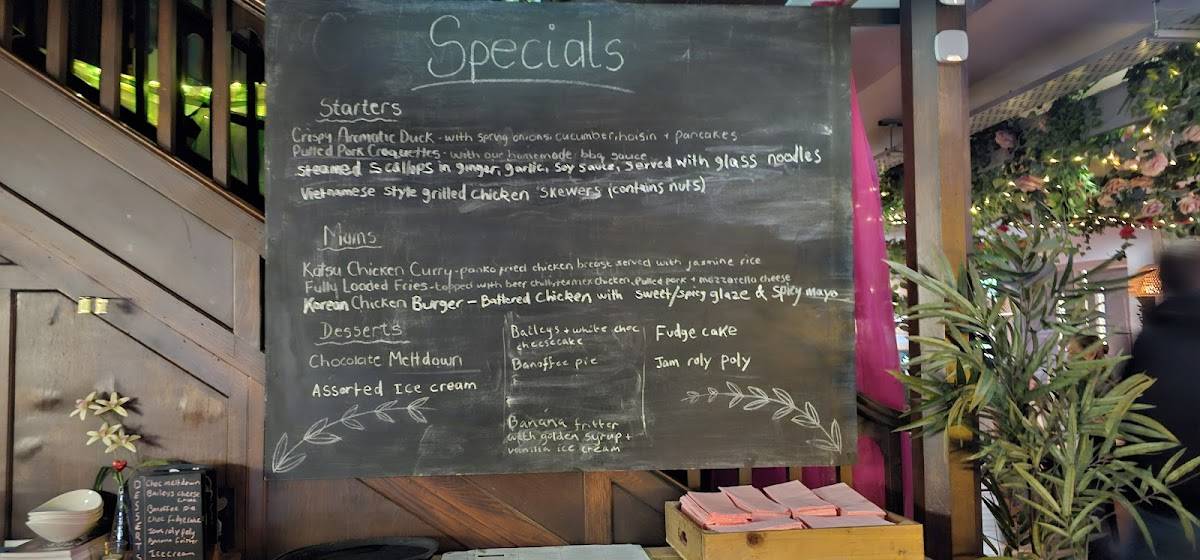 Specials
Starters
Crispy Aromatic Duck - with spring onions, cucumber, hoisin + pancakes
Pulled Pork Croquettes - with our homemade bbq sauce
Steamed Scallops in ginger, garlic, soy sauce, served with glass noodles
Vietnamese style grilled chicken skewers (contains nuts)
Mains
Katsu Chicken Curry - panko fried chicken breast served with jasmine rice
Fully Loaded Fries - topped with beef chilli, texmex chicken, pulled pork + mozzarella cheese
Korean Chicken Burger - Battered chicken with sweet/spicy glaze & spicy mayo
Desserts
Chocolate Meltdown
Assorted Ice cream
Baileys + white choc
cheesecake
Banoffee pie
Banana fritter
with golden syrup +
vanilla ice cream
Fudge cake
Jam roly poly
DESSERTS
Choc meltdown
Baileys cheese
cake
Banoffee pie
Choc fudge cake
Jam roly poly
Banana fritter
Ice cream